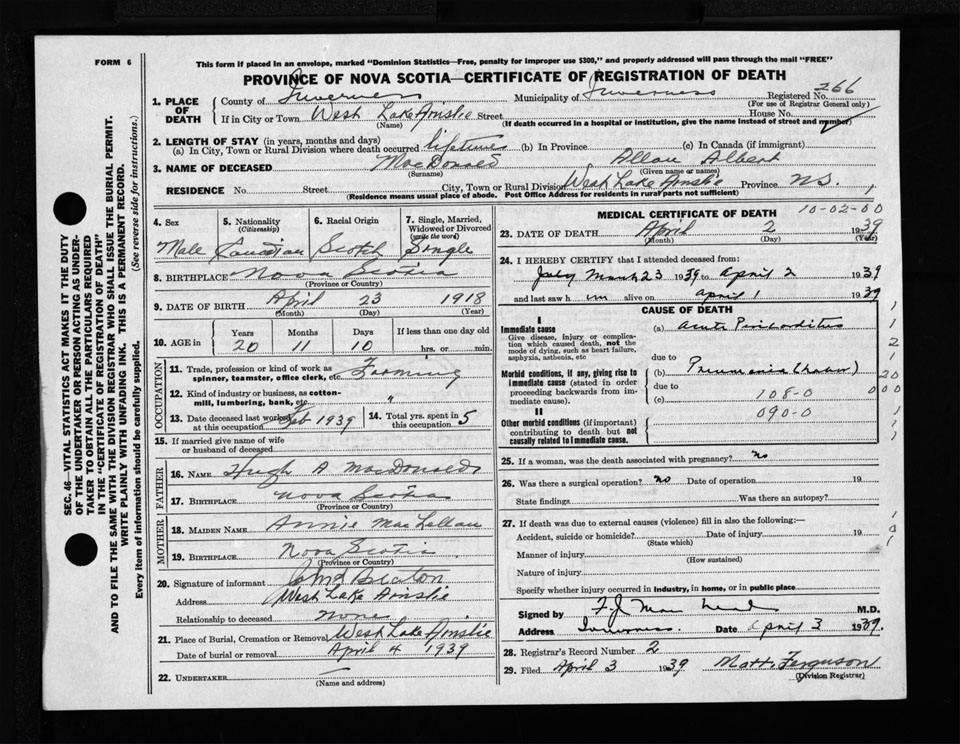 FORM 6
This form if placed in an envelope, marked "Dominion Statistics—Free, penalty for improper use $300," and properly addressed will pass through the mail "FREE"
PROVINCE OF NOVA SCOTIA—CERTIFICATE OF REGISTRATION OF DEATH
SEC. 46—VITAL STATISTICS ACT MAKES IT THE DUTY
OF THE UNDERTAKER OR PERSON ACTING AS UNDER-
TAKER TO OBTAIN ALL THE PARTICULARS REQUIRED
IN THE "CERTIFICATE OF REGISTRATION OF DEATH"
AND TO FILE THE SAME WITH THE DIVISION REGISTRAR WHO SHALL ISSUE THE BURIAL PERMIT.
WRITE PLAINLY WITH UNFADING INK. THIS IS A PERMANENT RECORD.
Every item of information should be carefully supplied. (See reverse side for instructions.)
1. PLACE OF DEATH
County of Inverness Municipality of Inverness Registered No. 266
(For use of Registrar General only)
If in City or Town West Lake Ainslie Street House No.
(Name) (If death occurred in a hospital or institution, give the name instead of street and number)
2. LENGTH OF STAY (in years, months and days)
(a) In City, Town or Rural Division where death occurred lifetime (b) In Province (c) In Canada (if immigrant)
3. NAME OF DECEASED MacDonald Allan Albert
(Surname) (Given name or names)
RESIDENCE No. Street City, Town or Rural Division West Lake Ainslie Province N.S.
(Residence means usual place of abode. Post Office Address for residents in rural parts not sufficient)
4. Sex 5. Nationality (Citizenship) 6. Racial Origin 7. Single, Married, Widowed or Divorced (write the word)
Male Canadian Scotch Single
8. BIRTHPLACE Nova Scotia
(Province or Country)
9. DATE OF BIRTH April 23 1918
(Month) (Day) (Year)
10. AGE in Years Months Days If less than one day old
20 11 10 hrs. or min.
OCCUPATION
11. Trade, profession or kind of work as spinner, teamster, office clerk, etc. Farming
12. Kind of industry or business, as cotton-mill, lumbering, bank, etc. "
13. Date deceased last worked at this occupation Feb 1939 14. Total yrs. spent in this occupation 5
15. If married give name of wife or husband of deceased
FATHER
16. NAME Hugh A MacDonald
17. BIRTHPLACE Nova Scotia
(Province or Country)
MOTHER
18. MAIDEN NAME Annie MacLellan
19. BIRTHPLACE Nova Scotia
(Province or Country)
20. Signature of informant Beaton
Address West Lake Ainslie
Relationship to deceased none
21. Place of Burial, Cremation or Removal West Lake Ainslie
Date of burial or removal April 4 1939
22. UNDERTAKER
(Name and address)
MEDICAL CERTIFICATE OF DEATH 10-02-00
23. DATE OF DEATH April 2 1939
(Month) (Day) (Year)
24. I HEREBY CERTIFY that I attended deceased from:
March 23 1939 to April 2 1939
and last saw h im alive on April 1 1939
CAUSE OF DEATH
I
Immediate cause (a) Acute Pericarditis
Give disease, injury or complication which caused death, not the mode of dying, such as heart failure, asphyxia, asthenia, etc
due to
Morbid conditions, if any, giving rise to immediate cause (stated in order proceeding backwards from immediate cause). (b) Pneumonia (Lobar)
due to
(c) 108-0
090-0
II
Other morbid conditions (if important) contributing to death but not causally related to immediate cause.
25. If a woman, was the death associated with pregnancy? No
26. Was there a surgical operation? No Date of operation 19
State findings Was there an autopsy?
27. If death was due to external causes (violence) fill in also the following:—
Accident, suicide or homicide? Date of injury 19
(State which)
Manner of injury
(How sustained)
Nature of injury
Specify whether injury occurred in industry, in home, or in public place
Signed by M.D.
Address Inverness Date April 3 1939.
28. Registrar's Record Number 2
29. Filed April 3 1939 Matt. Ferguson
(Division Registrar)